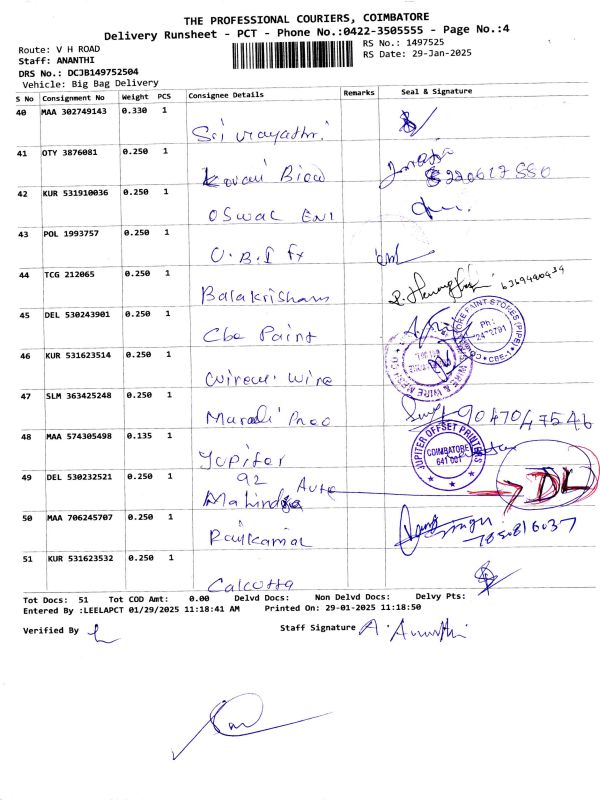 THE PROFESSIONAL COURIERS, COIMBATORE
Delivery Runsheet - PCT - Phone No.:0422-3505555 - Page No.:4
Route: V H ROAD
RS No.: 1497525
Staff: ANANTHI
RS Date: 29-Jan-2025
DRS No.: DCJB149752504
Vehicle: Big Bag Delivery
S No Consignment No Weight PCS Consignee Details Remarks Seal & Signature
40 MAA 302749143 0.330 1
Sri
41 OTY 3876081 0.250 1
42 KUR 531910036 0.250 1
OSWAL ENT
43 POL 1993757 0.250 1
U.B.I Fx
44 TCG 212065 0.250 1
Balakrishans
45 DEL 530243901 0.250 1
Cbe Paint
46 KUR 531623514 0.250 1
Wire
47 SLM 363425248 0.250 1
9047047546
48 MAA 574305498 0.135 1
Jupiter
JUPITER OFFSET PRINTERS
COIMBATORE
641 001
49 DEL 530232521 0.250 1
92 Auto
Mahindra
DL
50 MAA 706245707 0.250 1
Rajkamal
7850816037
51 KUR 531623532 0.250 1
Calcutta
Tot Docs: 51 Tot COD Amt: 0.00 Delvd Docs: Non Delvd Docs: Delvy Pts:
Entered By :LEELAPCT 01/29/2025 11:18:41 AM Printed On: 29-01-2025 11:18:50
Verified By
Staff Signature A. Ananthi